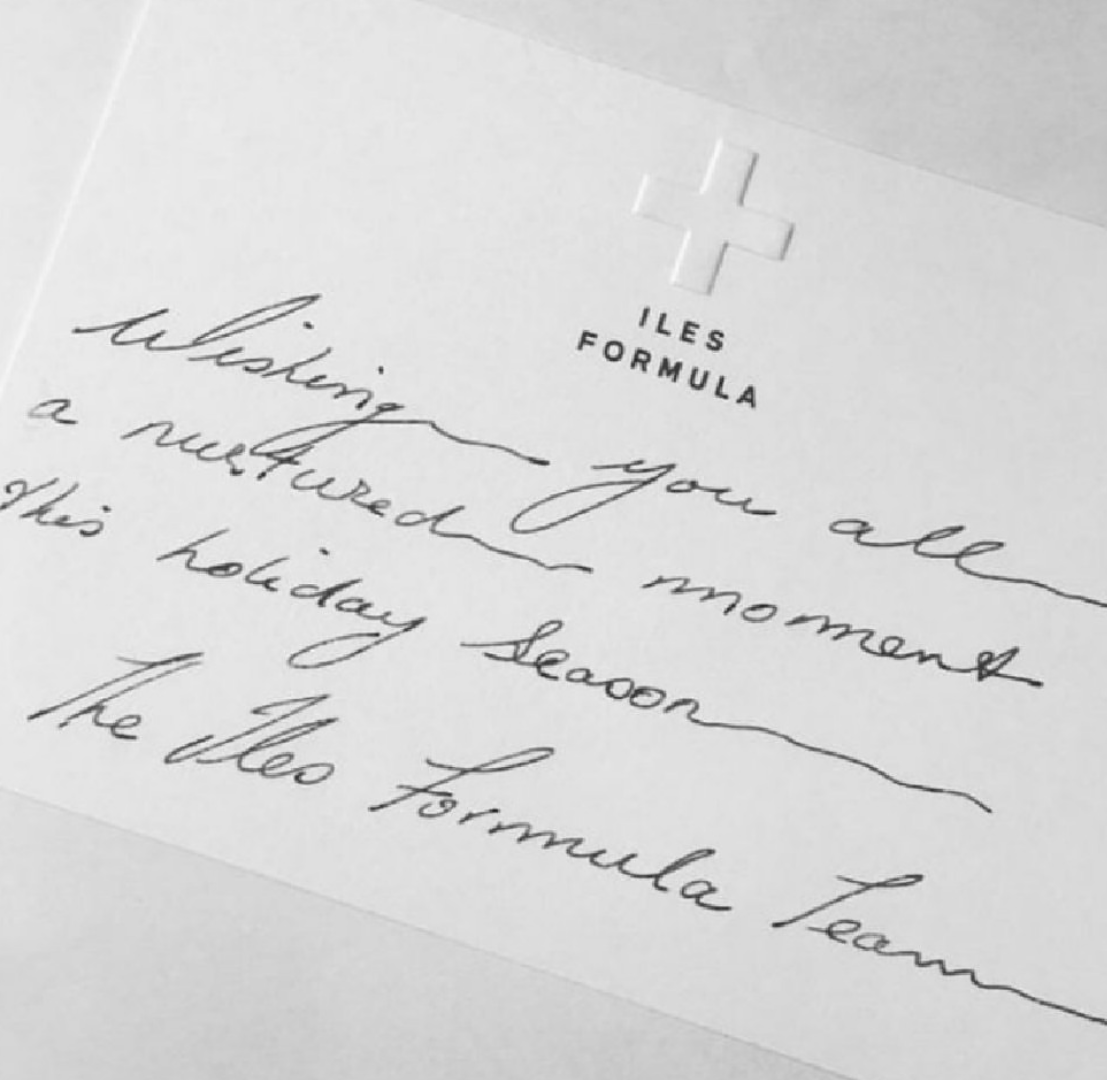 ILES
FORMULA
Wishing you all
a nurtured moment
this holiday season
The Iles Formula Team